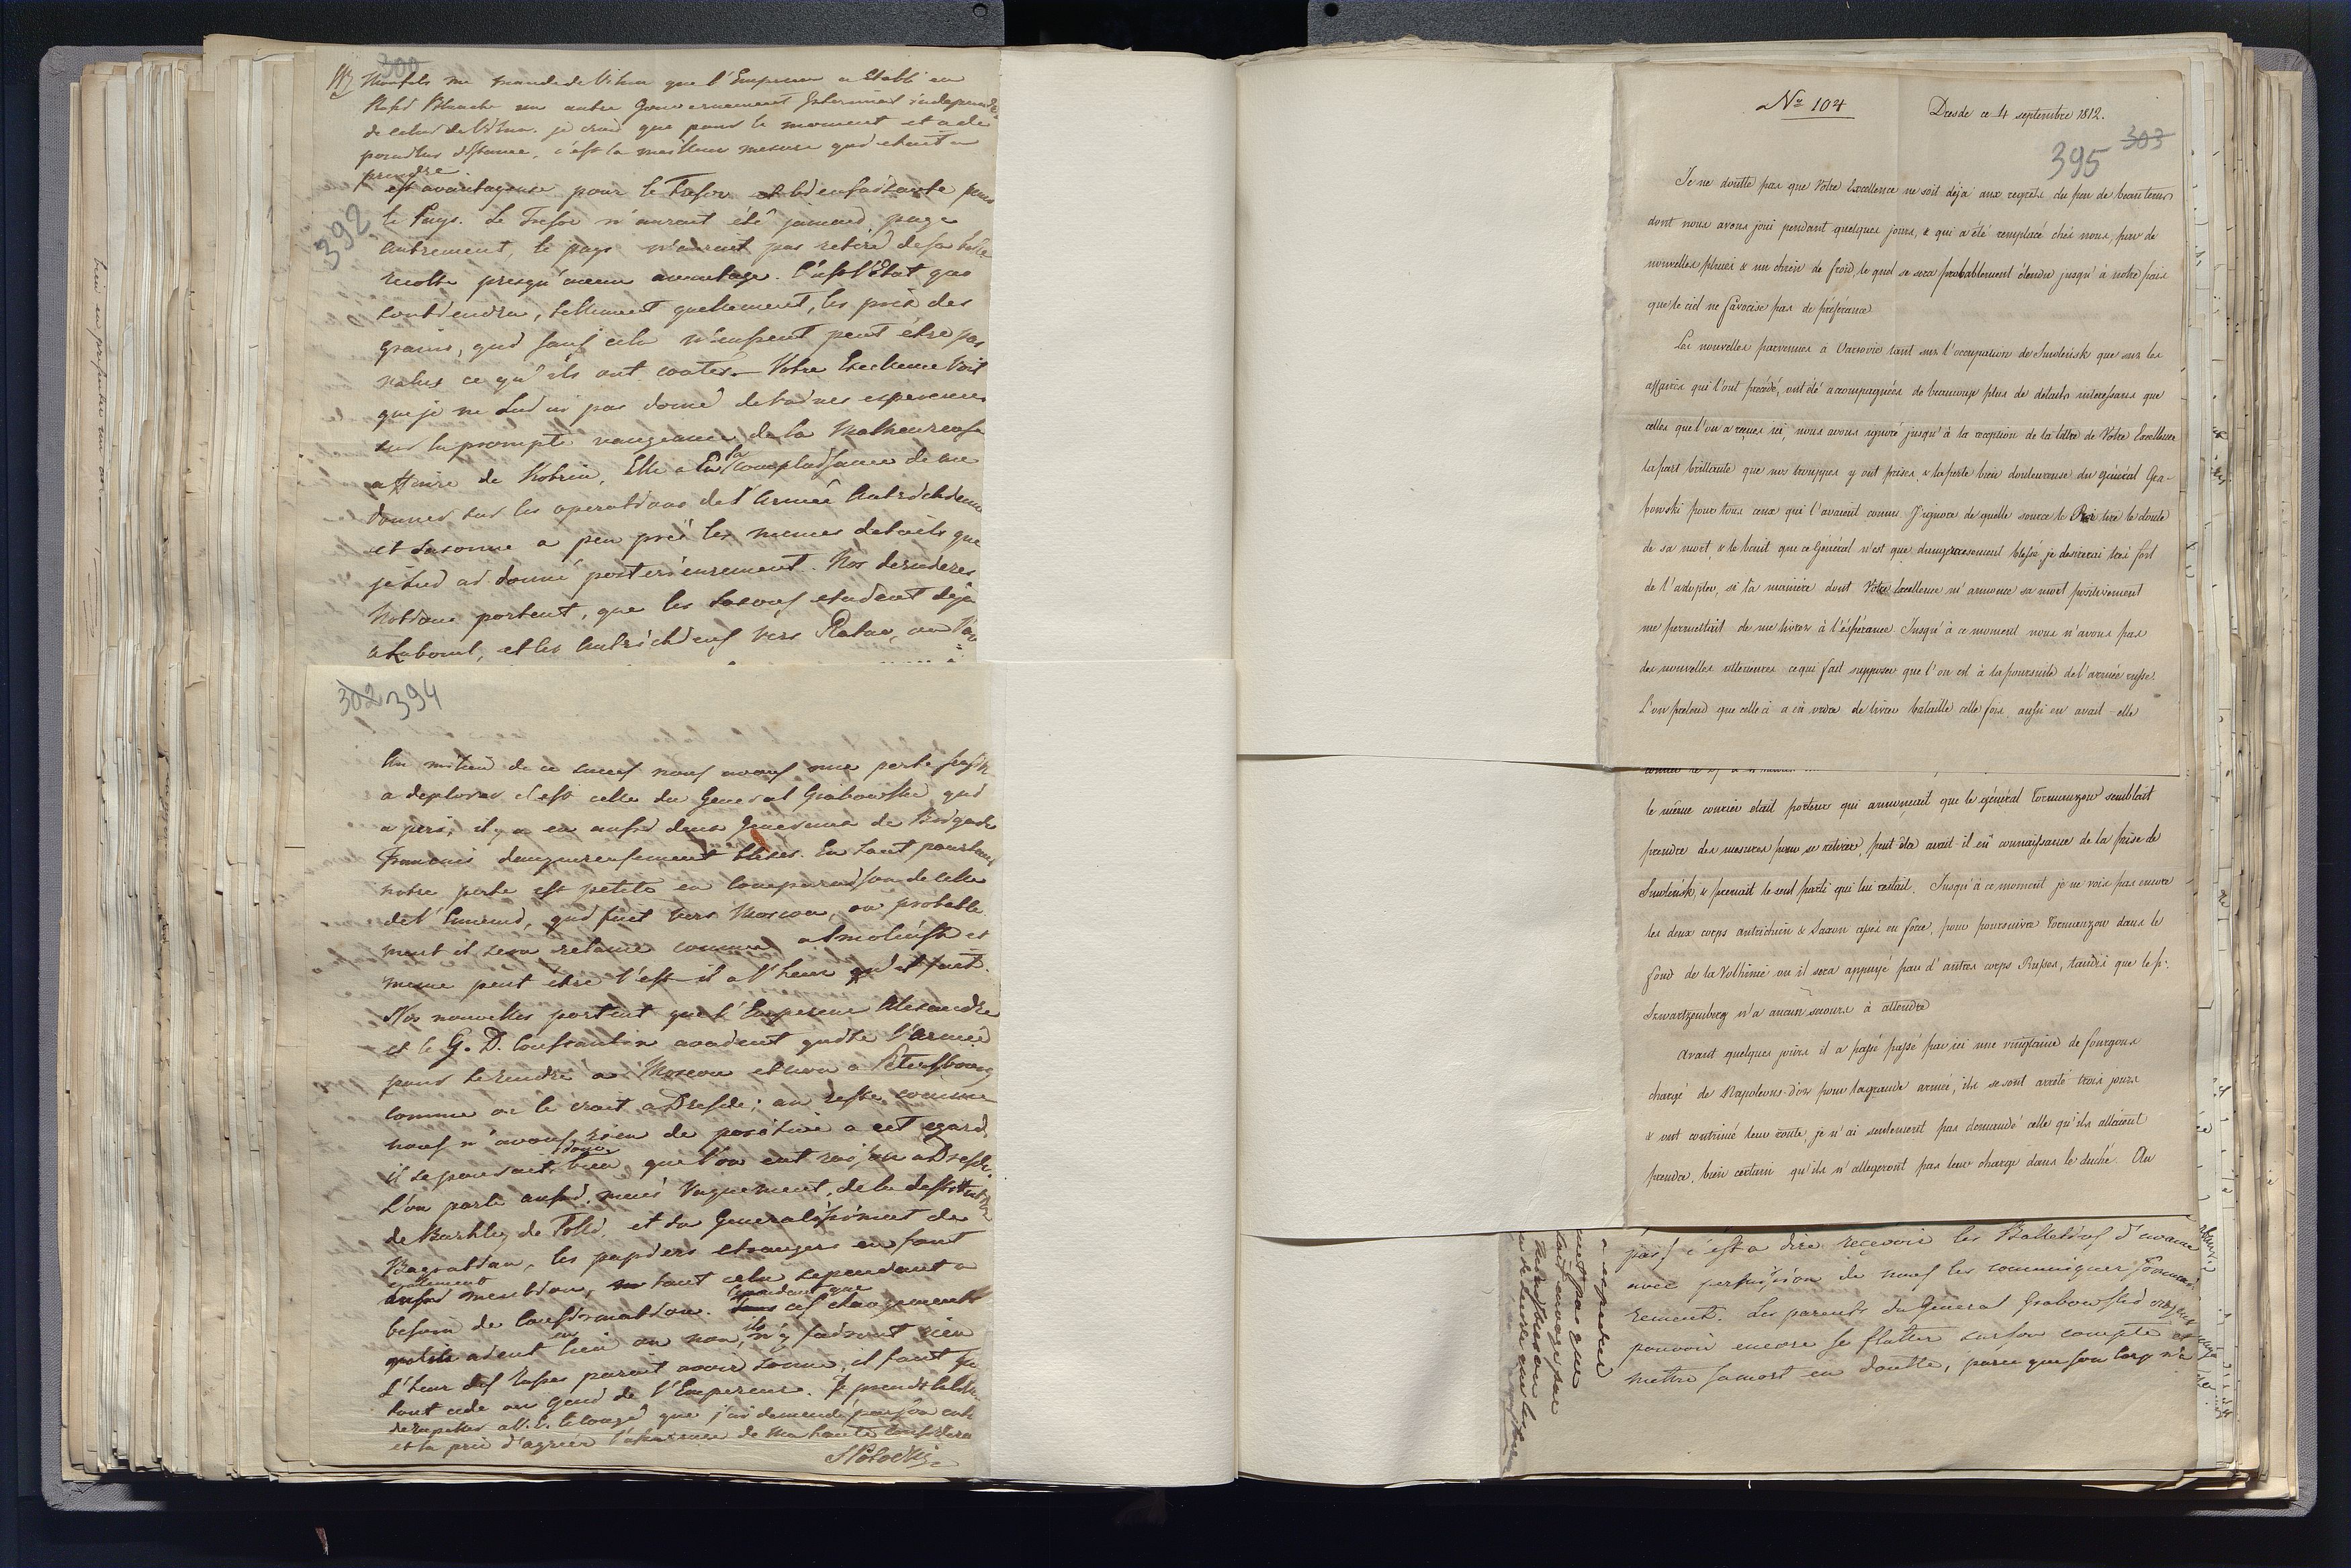 300
me mande de Vilna que l'Empereur a établi en
Blanche un autre Gouvernement
de celui de Vilna. je crois que pour le moment et a de
distance, c'est la meilleure mesure qui etait a
prendre.
392
est avantageuse pour le Tresor et bienfaisante pour
le Pays. Le Tresor n'aurait été jamais payé
autrement, le pays n'auroit pas retiré de sa belle
recolte presqu'aucun avantage. C'est l'Etat qui
soutiendra, tellement quellement, les prix des
grains, qui sans cela n'eussent peut être pas
valus ce qu'ils ont coutés. Votre Excellence voit
que je ne lui ai pas donné de vaines esperances
sur la prompte vangeance de la Malheureuse
affaire de Kobrin, Elle a eu la complaisance de me
donner sur les operations de l'Armée Autrichienne
et Saxonne a peu près les memes details que
je lui ai donné posterieurement. Nos dernieres
Notions portent, que les Saxons etaient deja
a Luboml, et les Autrichiens vers Ratno, on l'on
302 394
Au milieu de ce succes nous avons une perte
a deplorer c'est celle du General Grabowski, qui
a peri, il y a eu aussi deux Generaux de Brigade
Francais dangeureusement blessés. En tout pourtant
notre perte est petite en comparaison de celle
de l'Ennemi, qui fuit vers Moscou, ou probable
ment il sera relancé comme a Smolensk et
meme peut être l'est-il a l'heur qu'il fuit.
Nos nouvelles portent que l'Empereur Alexandre
et le G. D. Constantin avaient quitté l'Armée
pour se rendre a Moscou et non a Petersbourg
comme on le croit a Dresde; au reste comme
nous n'avons rien de positive a cet egard,
il se pourrait donc bien que l'on eut raison a Dresde.
L'on parle aussi, mais vaguement, de la destitution
de Barkley de Tolli, et du Generalissimat de
Bagration, les papiers etrangers en font
egalement mention, tout cela cependant a
besoin de confirmation. Cependant que ces changements
aient lieu ou non, ils n'y feront rien
L'heur des Russes parait avoir sonné, il faut que
tout cede au Genie de l'Empereur. Je prends la
de rapeller a V. E. le congé que j'ai demandé
et la prie d'agréer l'assurance de ma haute consideration
SPotocki
No 104
Dresde ce 4 septembre 1812.
395 303
Je ne doutte pas que Votre Excellence ne soit déja aux regrets du peu de beau tems
dont nous avons joui pendant quelques jours, & qui a été remplacé chés nous, par de
nouvelles pluies & un chien de froid, le quel se sera probablement étendu jusqu'à notre païs
que le ciel ne favorise pas de préférance
Les nouvelles parvenues à Varsovie tant sur l'occupation de Smolensk que sur les
affaires qui l'ont precédé, ont été accompagnées de beaucoup plus de détails interessans que
celles que l'on a reçues ici, nous avons ignoré jusqu'à la reception de la lettre de Votre Excellence
la part brillante que nos trouppes y ont prises, & la perte bien douloureuse du général Gra-
bowski pour tous ceux qui l'avaient connu. J'ignore de quelle source le Roi tire le doute
de sa mort, & le bruit que ce Général n'est que dangereusement blessé, je desirerai trés fort
de l'adopter, si la manière dont Votre Excellence m'annonce sa mort positivement
me permettait de me livrer à l'éspérance. Jusqu'à ce moment nous n'avons pas
des nouvelles ulterieures ce qui fait supposer que l'on est à la poursuite de l'armée russe.
L'on prétend que celle ci a eû ordre de livrer bataille cette fois, aussi en avait-elle
le même courier etait porteur qui annonçait que le général Tormanzow semblait
prendre des mesures pour se retirer, peut être avait-il eû connaissance de la prise de
Smolensk, & prenait le seul parti qui lui restait. Jusqu'à ce moment je ne vois pas encore
les deux corps autrichien & Saxon assés en force, pour poursuivre Tormanzow dans le
fond de la Volhinie ou il sera appuyé par d'autres corps Russes, tandis que le p:
Szwartzemberg n'a aucun secours à attendre
Avant quelques jours il a passé passé par ici une vingtaine de fourgons
chargé de Napoleons-d'or pour la grande armée, ils se sont arreté trois jours
& ont continué leur route, je n'ai seulement pas demandé celle qu'ils allaient
prendre, bien certain qu'ils n'allegeront pas leur charge dans le duché. Au
pas) c'est a dire recevoir les Bulletins d'avance
avec permission de nous les communiquer
rement. Les parents du General Grabowski
pouvoir encore se flatter sur son compte et
mettre sa mort en doutte, parce que son corp n'a